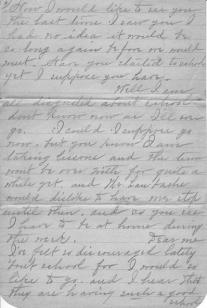 Now I would like to see you
the last time I saw you I
had no idea it would be
so long again before we would
meet. Have you started to school
yet I suppose you have.
Well I am
all disgusted about school
dont know now as I'll ever
go. I could I suppose go
now, but you know I am
taking lessons and the time
wont be over with for quite a
while yet, and Mr.
would dislike to have me stop
until then, and so you see
I have to be at home during
the week. Dear me
Ive felt so discouraged lately
bout school for I would so
like to go. and I hear that
they are having such a good
school